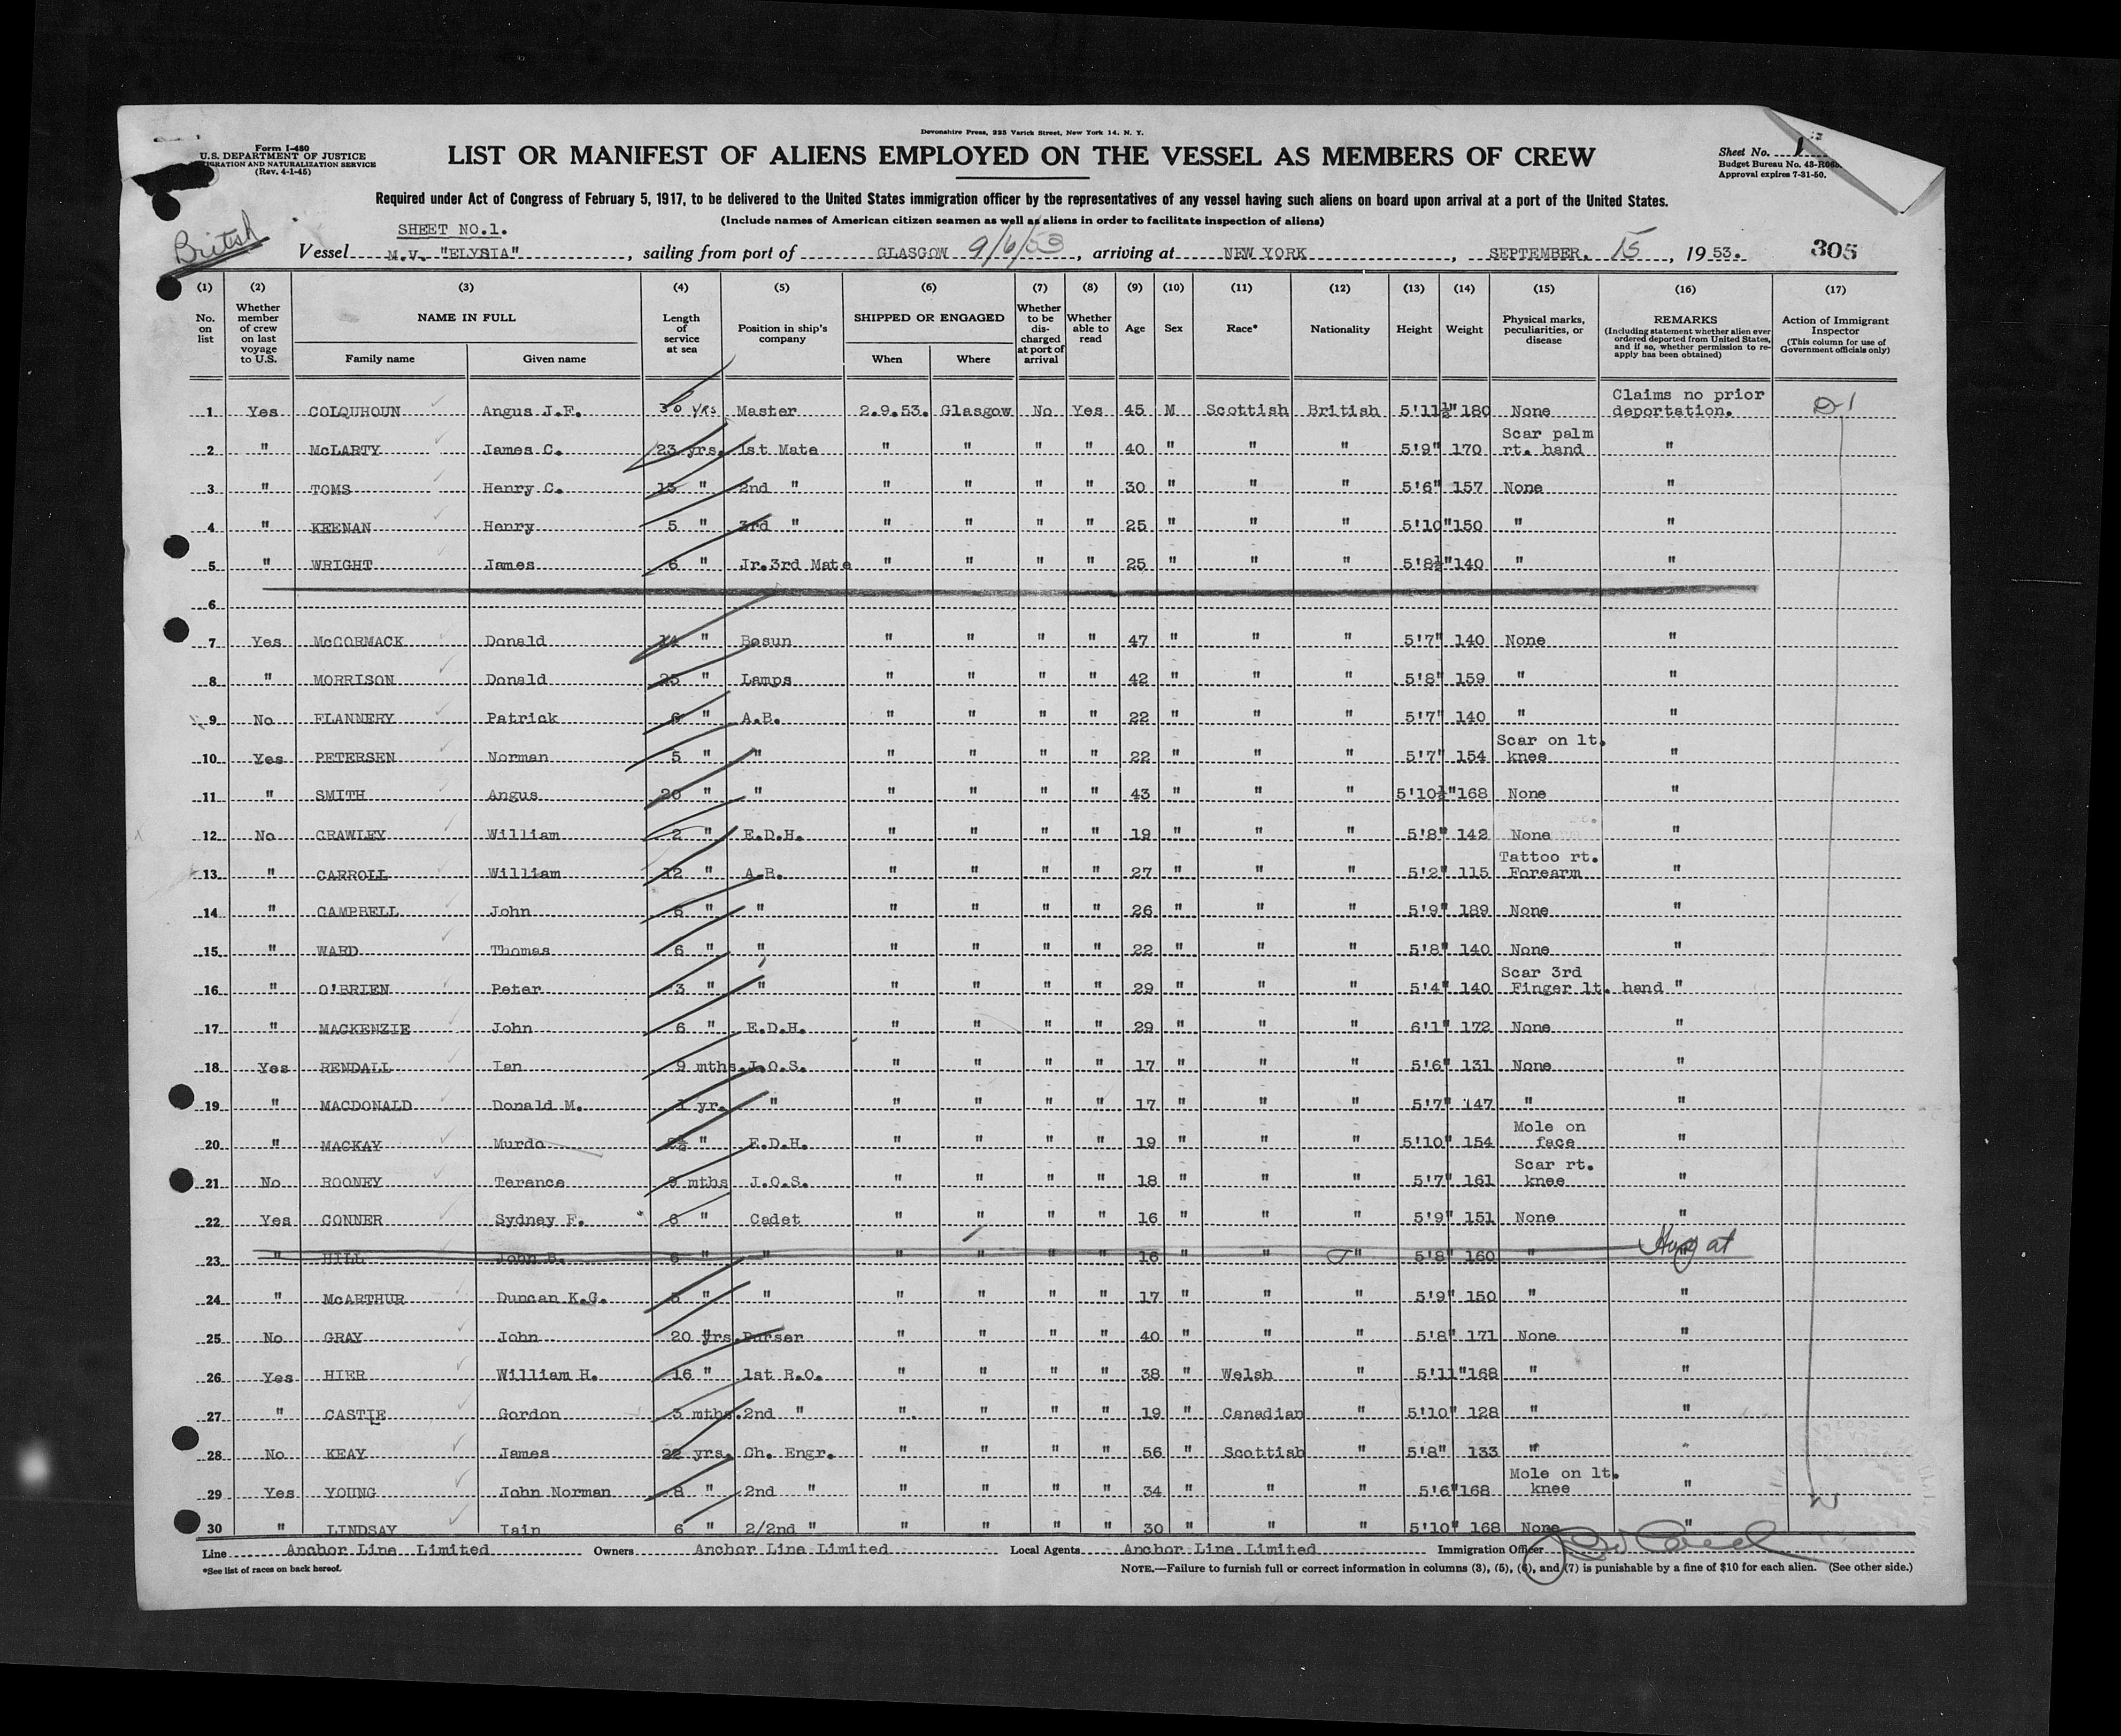 Devonshire Press, 225 Varick Street, New York 14, N. Y.
Form I-480
U.S. DEPARTMENT OF JUSTICE
IMMIGRATION AND NATURALIZATION SERVICE
(Rev. 4-1-45)
LIST OR MANIFEST OF ALIENS EMPLOYED ON THE VESSEL AS MEMBERS OF CREW
Sheet No. 1
Budget Bureau No. 43-R065.
Approval expires 7-31-50.
Required under Act of Congress of February 5, 1917, to be delivered to the United States immigration officer by the representatives of any vessel having such aliens on board upon arrival at a port of the United States.
(Include names of American citizen seamen as well as aliens in order to facilitate inspection of aliens)
British
SHEET NO.1.
Vessel M.V. "ELYSIA", sailing from port of GLASGOW 9/6/53, arriving at NEW YORK, SEPTEMBER. 15, 1953. 305
(1) (2) (3) (4) (5) (6) (7) (8) (9) (10) (11) (12) (13) (14) (15) (16) (17)
No. on list | Whether member of crew on last voyage to U.S. | NAME IN FULL | Family name | Given name | Length of service at sea | Position in ship's company | SHIPPED OR ENGAGED | When | Where | Whether to be discharged at port of arrival | Whether able to read | Age | Sex | Race* | Nationality | Height | Weight | Physical marks, peculiarities, or disease | REMARKS (Including statement whether alien ever ordered deported from United States, and if so, whether permission to re-apply has been obtained) | Action of Immigrant Inspector (This column for use of Government officials only)
1 Yes COLQUHOUN Angus J.F. 30 yrs Master 2.9.53. Glasgow No Yes 45 M Scottish British 5'11½" 180 None Claims no prior deportation. D-1
2 " McLARTY James C. 23 yrs. 1st Mate " " " " 40 " " " 5'9" 170 Scar palm rt. hand "
3 " TOMS Henry C. 13 " 2nd " " " " " 30 " " " 5'6" 157 None "
4 " KEENAN Henry 5 " 3rd " " " " " 25 " " " 5'10" 150 " "
5 " WRIGHT James 6 " Jr.3rd Mate " " " " 25 " " " 5'8½" 140 " "
6
7 Yes McCORMACK Donald 14 " Bosun " " " " 47 " " " 5'7" 140 None "
8 " MORRISON Donald 25 " Lamps " " " " 42 " " " 5'8" 159 " "
9 No FLANNERY Patrick 6 " A.B. " " " " 22 " " " 5'7" 140 " "
10 Yes PETERSEN Norman 5 " " " " " " 22 " " " 5'7" 154 Scar on lt. knee "
11 " SMITH Angus 20 " " " " " " 43 " " " 5'10½" 168 None "
12 No CRAWLEY William 2 " E.D.H. " " " " 19 " " " 5'8" 142 None "
13 " CARROLL William 12 " A.B. " " " " 27 " " " 5'2" 115 Tattoo rt. Forearm "
14 " CAMPBELL John 6 " " " " " " 26 " " " 5'9" 189 None "
15 " WARD Thomas 6 " " " " " " 22 " " " 5'8" 140 None "
16 " O'BRIEN Peter 3 " " " " " " 29 " " " 5'4" 140 Scar 3rd Finger lt. hand "
17 " MACKENZIE John 6 " E.D.H. " " " " 29 " " " 6'1" 172 None "
18 Yes RENDALL Ian 9 mths. J.O.S. " " " " 17 " " " 5'6" 131 None "
19 " MACDONALD Donald M. 1 yr. " " " " " 17 " " " 5'7" 147 " "
20 " MACKAY Murdo 2½ " E.D.H. " " " " 19 " " " 5'10" 154 Mole on face "
21 No ROONEY Terence 9 mths J.O.S. " " " " 18 " " " 5'7" 161 Scar rt. knee "
22 Yes CONNER Sydney F. 6 " Cadet " " " " 16 " " " 5'9" 151 None "
23 " HILL John B. 6 " " " " " " 16 " " " 5'8" 160 "
24 " McARTHUR Duncan K.G. 5 " " " " " " 17 " " " 5'9" 150 " "
25 No GRAY John 20 yrs. Purser " " " " 40 " " " 5'8" 171 None "
26 Yes HIER William H. 16 " 1st R.O. " " " " 38 " Welsh " 5'11" 168 " "
27 " CASTLE Gordon 3 mths. 2nd " " " " " 19 " Canadian " 5'10" 128 " "
28 No KEAY James 22 yrs. Ch. Engr. " " " " 56 " Scottish " 5'8" 133 " "
29 Yes YOUNG John Norman 8 " 2nd " " " " " 34 " " " 5'6" 168 Mole on lt. knee "
30 " LINDSAY Iain 6 " 2/2nd " " " " " 30 " " " 5'10" 168 None "
Line Anchor Line Limited Owners Anchor Line Limited Local Agents Anchor Line Limited Immigration Officer
*See list of races on back hereof.
NOTE.—Failure to furnish full or correct information in columns (3), (5), (6), and (7) is punishable by a fine of $10 for each alien. (See other side.)